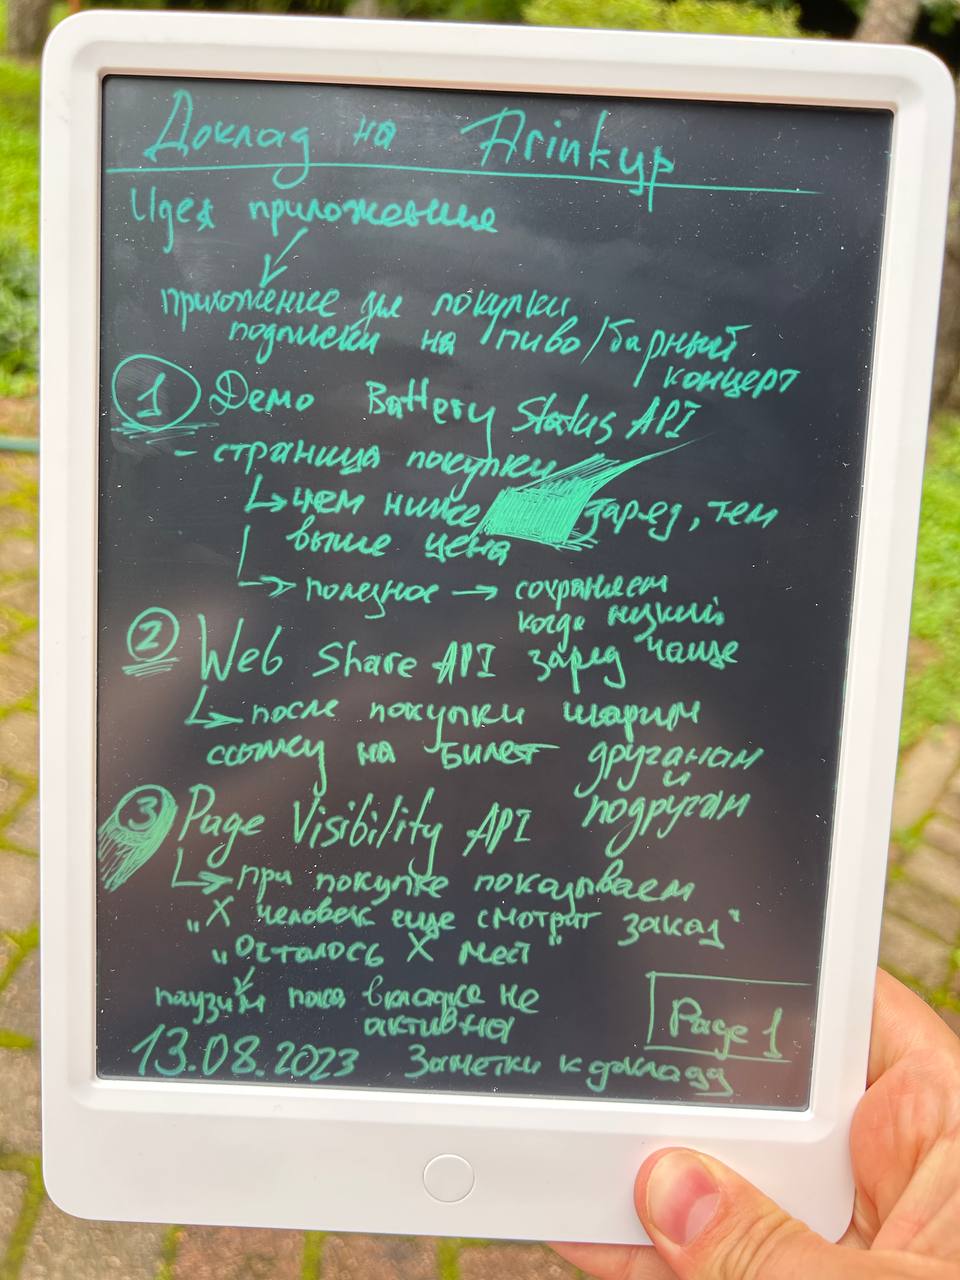 Доклад на Drinkup
Идея приложения
приложение для покупки
подписки на пиво/барный
концерт
1 Демо Battery Status API
- страница покупки
чем ниже заряд, тем
выше цена
полезное → сохраняем
когда низкий
заряд чаще
2 Web Share API
после покупки шарим
ссылку на билет друганам
и
подругам
3 Page Visibility API
при покупке показываем
"X человек еще смотрит заказ"
"Осталось X мест"
паузим пока вкладка не
активна
Page 1
13.08.2023 Заметки к докладу